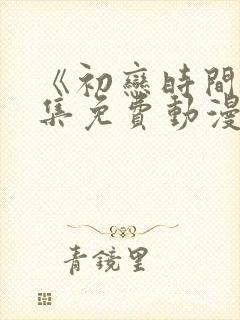 《初戀時間
集免費動漫
青鏡里